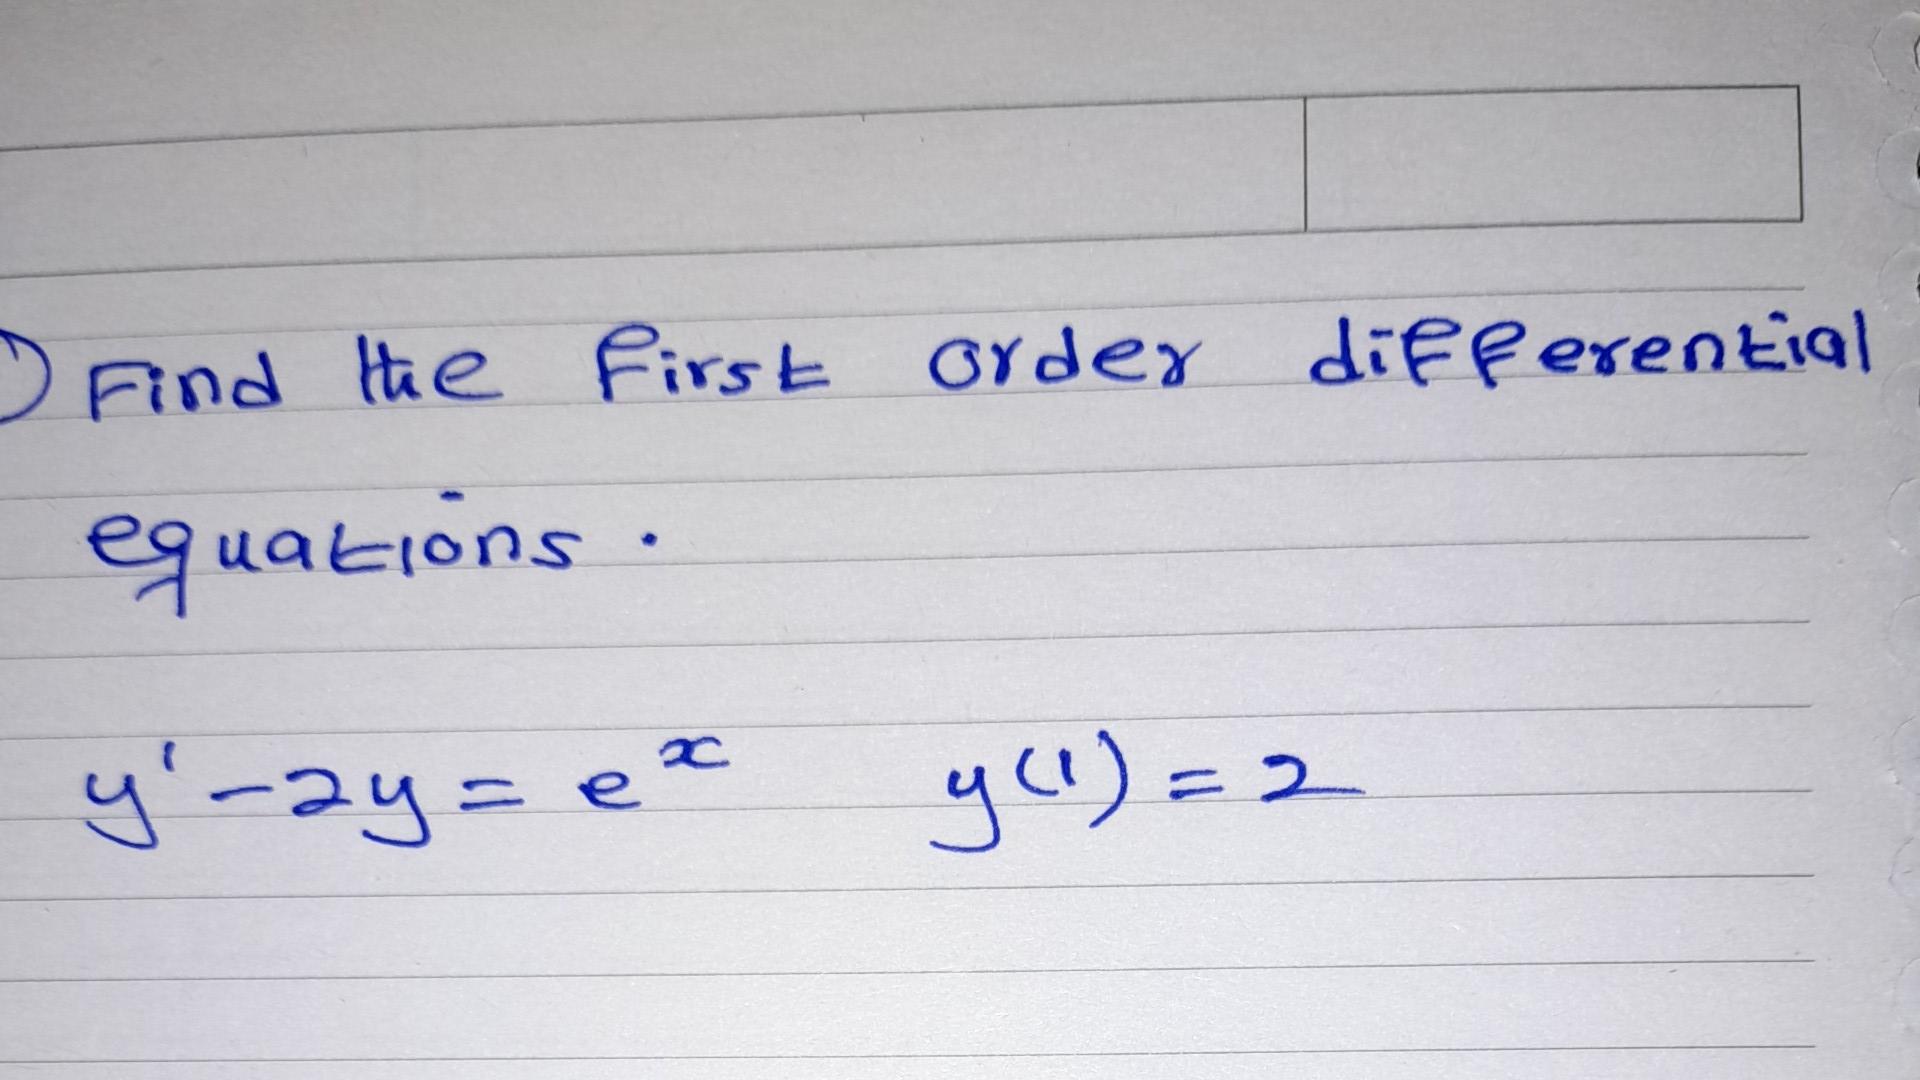 1) Find the first order differential
equations.
y' - 2y = eˣ y(1) = 2